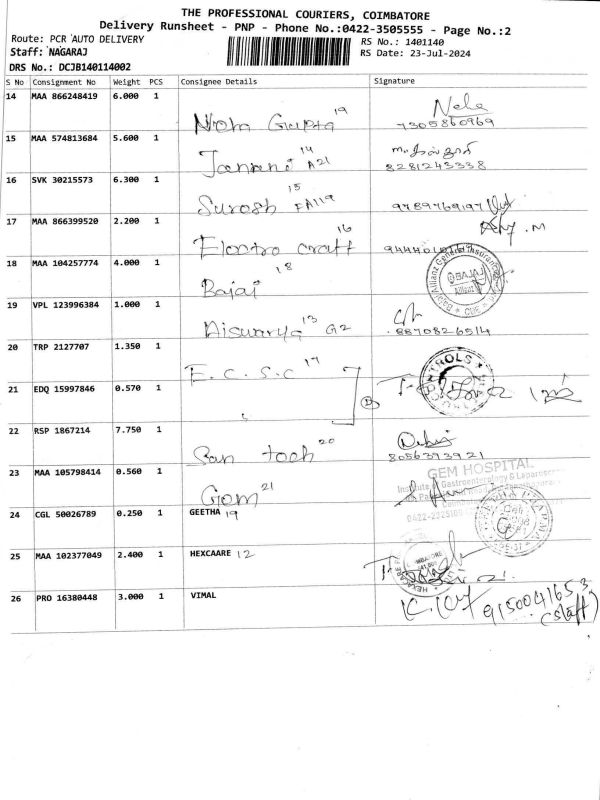 THE PROFESSIONAL COURIERS, COIMBATORE
Delivery Runsheet - PNP - Phone No.:0422-3505555 - Page No.:2
Route: PCR AUTO DELIVERY
RS No.: 1401140
Staff: NAGARAJ
RS Date: 23-Jul-2024
DRS No.: DCJB140114002
S No Consignment No Weight PCS Consignee Details Signature
14 MAA 866248419 6.000 1 Nom Gupta 19
7305860969
15 MAA 574813684 5.600 1 14 A21
8281243338
16 SVK 30215573 6.300 1 Suresh 15 FA119
9789769197
17 MAA 866399520 2.200 1 Electro craft 16
18 MAA 104257774 4.000 1 Bajaj 18
Bajaj Allianz General Insurance
BAJAJ
Allianz
CBE
19 VPL 123996384 1.000 1 Aiswarya 13 G2
8870826514
20 TRP 2127707 1.350 1 E.C.S.C 17
21 EDQ 15997846 0.570 1
22 RSP 1867214 7.750 1 San tech 20
8056393921
23 MAA 105798414 0.560 1 Gem 21
GEM HOSPITAL
Institute of Gastroenterology & Laparoscopic
24 CGL 50026789 0.250 1 GEETHA 19
25 MAA 102377049 2.400 1 HEXCAARE 12
26 PRO 16380448 3.000 1 VIMAL
9150041653
(staff)